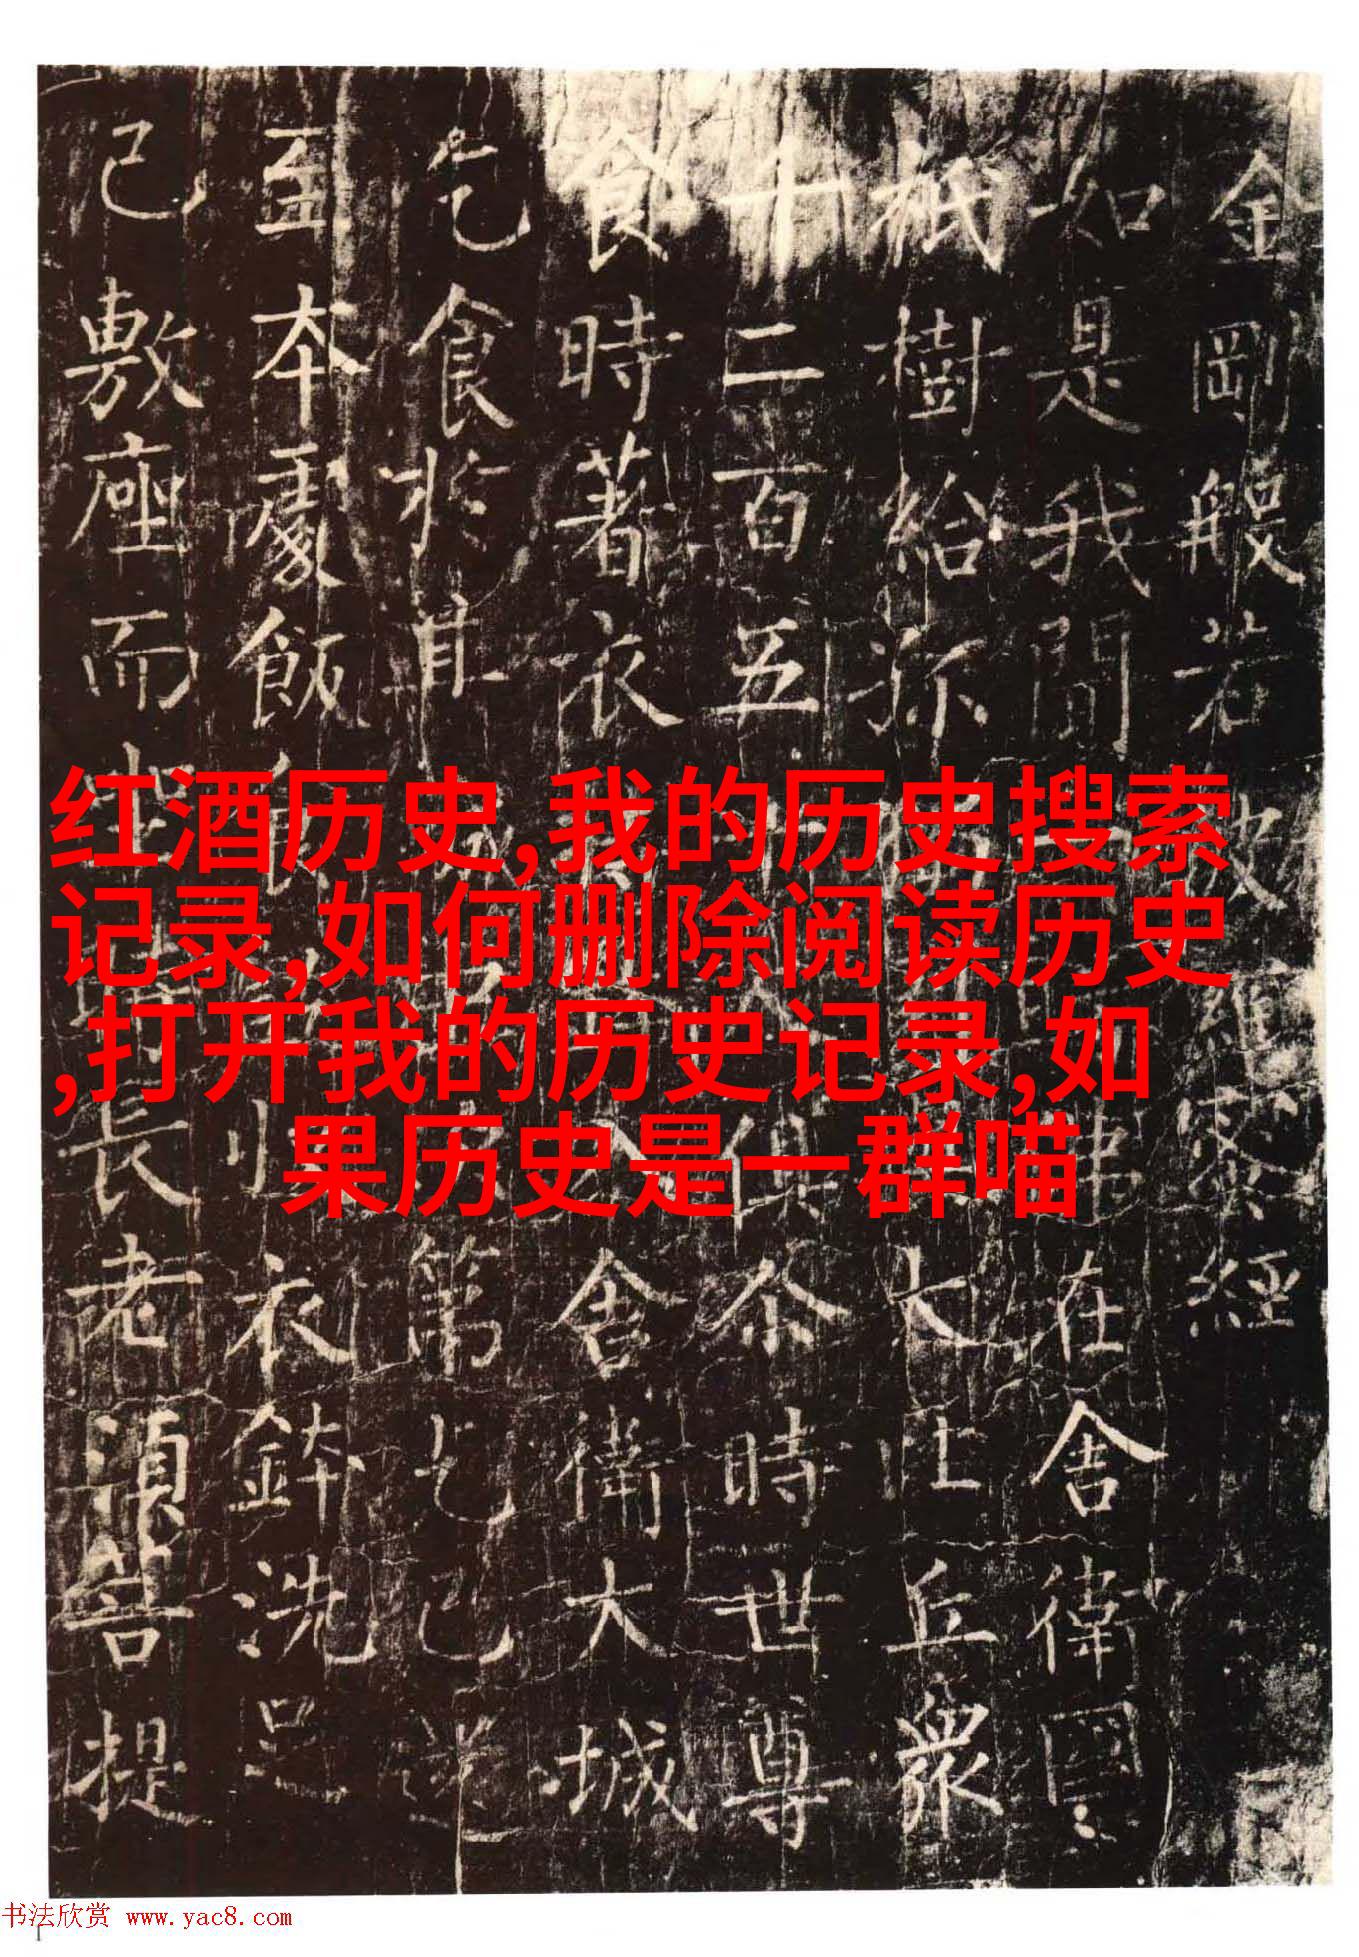 金剛般若波羅蜜經
如是我聞在舍衛國
祇樹給孤大比丘衆
千二百五十人俱尒時世尊
食時著衣入舍衛大城
乞食於其城第乞已還
至本處飯食收衣鉢洗足
已敷座而坐時長老須菩提
红酒历史,我的历史搜索
记录,如何删除阅读历史
,打开我的历史记录,如
果历史是一群喵
书法欣赏 www.yac8.com